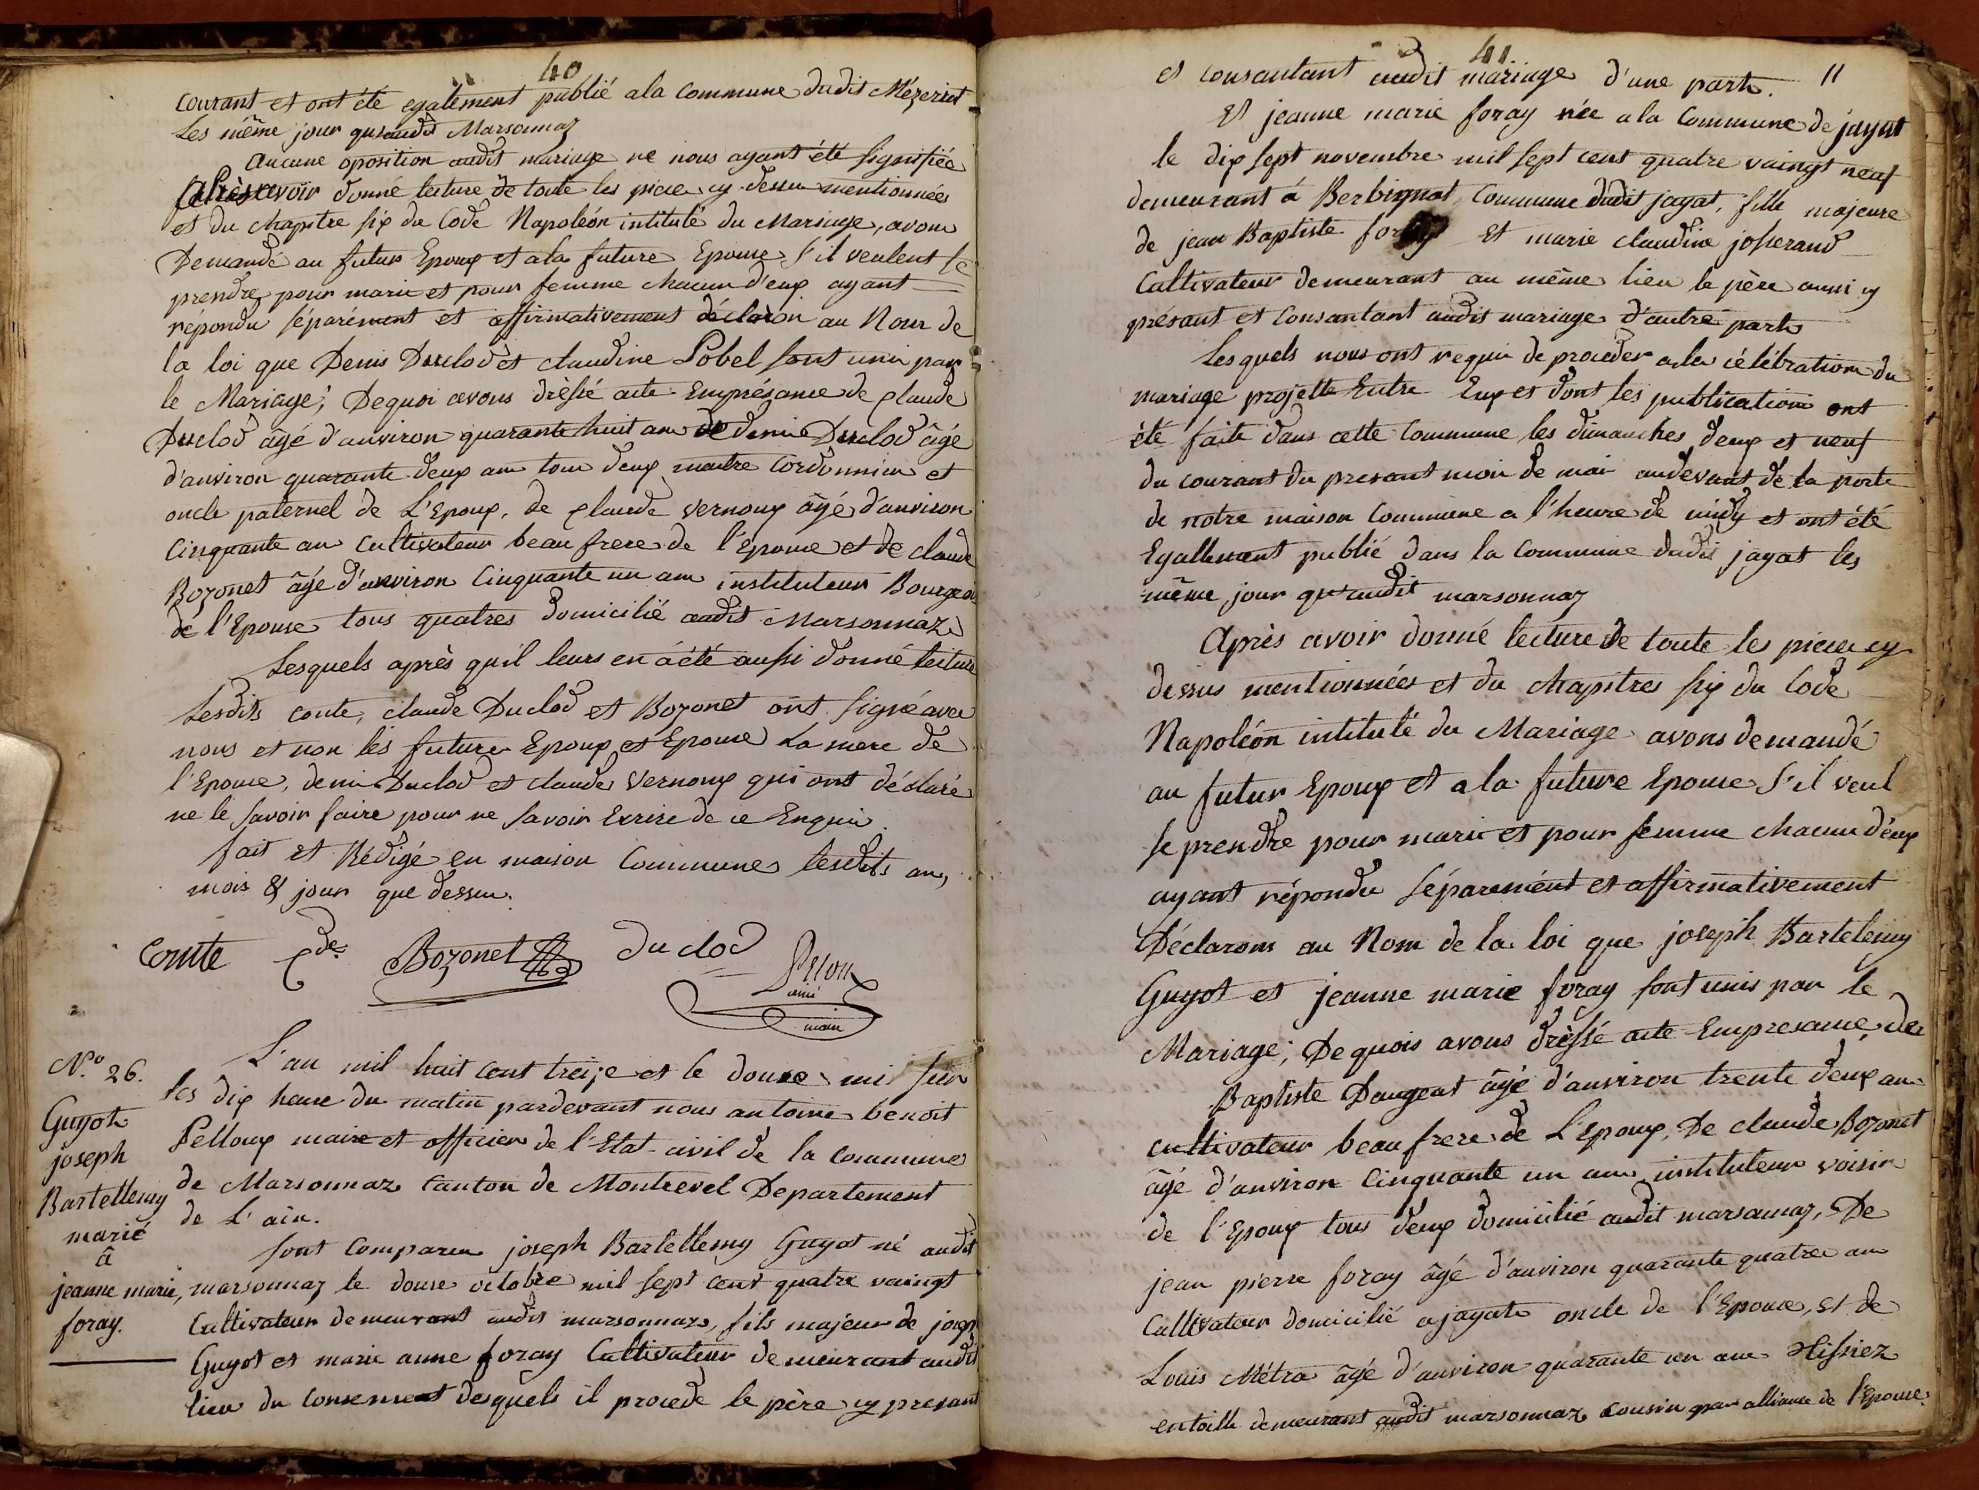 40
courant et ont été egalement publié a la commune dudit Mézeriat
les même jour qu'audit Marsonnaz
Aucune oposition audit mariage ne nous ayant été signifiée
Après avoir donné lecture de toute les piece cy dessu mentionnées
et du chapitre six du Code Napoléon intitulé du Mariage, avom
Demandé au futur Epoux et a la future Epouse s'il veulent se
prendre pour marie et pour femme chacun d'eux ayant
répondu séparément et affirmativement déclaron au Nom de
la loi que Denis Duclod et claudine Pobel sont unis par
le Mariage; De quoi avons drèssé acte Enprésance de claude
Duclod âgé d'anviron quarante huit an de denis Duclod âgé
d'anviron quarante deux am tous deux maitre Cordonnier et
oncle paternel de L'Epoux, de claude Vernoux âgé d'anviron
Cinquante an Cultivateur beau frere de l'Epouse et de claude
Bozonet âgé d'anviron Cinquante un am instituteur Bourgeois
de l'Epouse tous quatres domicilié audit Marsonnaz
Lesquels après quil leurs en à été aussi donné lecture
Lesdits conte, claude Duclod et Bozonet ont signé avec
nous et non les future Epoux et Epouse La mere de
l'Epouse, denis Duclod et claude Vernoux qui ont déclaré
ne le savoir faire pour ne savoir Ecrire de ce Enquis
fait et Rédigé en maison Communes lesdits an,
mois & jour que dessu.
Comte Cde Bozonet Duclod
N.º 26.
Guyot
joseph
Bartellemy
marié
â
jeanne marie,
foray.
L'an mil huit cent treize et le douze mi sur
les dix heure du matin pardevant nous antoine benoit
Pelloux maire et officier de l'Etat-civil de la commune
de Marsonnaz Canton de Montrevel Departement
de L'ain.
sont Comparu joseph Bartellemy Guyot né audit
marsonnaz le douse octobre mil sept cent quatre vaingt
Cultivateur demeurant audit marsonnaz, fils majeur de joseph
Guyot et marie anne foray Cultivateur demeurant audit
lieu du consement desquels il procede le père cy presant
41 11
et consantant audit mariage d'une part.
Et jeanne marie foray née a la Commune de jayat
le dix sept novembre mil sept cent quatre vaingt neuf
demeurant á Berbignat Commune dudit jayat, fille majeure
de jean Baptiste foray Et marie claudine josserand
Cultivateur demeurant au même lieu le père aussi cy
présant et Consantant audit mariage d'autre part
Lesquels nous ont requis de proceder a la célébration du
mariage projetté Entre Eux et dont les publication ont
été faite dans cette Commune les dimanches deux et neuf
du courant du presant moi de mai audevant de la porte
de notre maison Commune a l'heure de midy et ont été
Egallement publié dans la Commune dudit jayat les
même jour qu'audit marsonnaz
Après avoir donné lecture de toute les piece cy
dessus mentionnées et du chapitres six du Code
Napoléon intitulé du Mariage avons demandé
au futur Epoux et a la future Epouse s'il veul
se prendre pour marie et pour femme chacun d'eux
ayant répondu séparemént et affirmativement
Déclarons au Nom de la loi que joseph Bartelemy
Guyot et jeanne marie foray sont unis par le
Mariage; De quois avons drèssé acte Enpresance de
Baptiste Dangeat âgé d'anviron trente deux an
cultivateur beau frere de L'Epoux, De claude Bozonet
âgé d'anviron Cinquante un am instituteur voisin
de l'Epoux tous deux domicilié audit marsonnaz, De
jean pierre foray âgé d'anviron quarante quatre an
Cultivateur domicilié a jayat oncle de l'Epouse, et de
Louis Métra âgé d'anviron quarante un an tissiez
entoille demeurant audit marsonnaz cousin par alliance de l'Epouse.